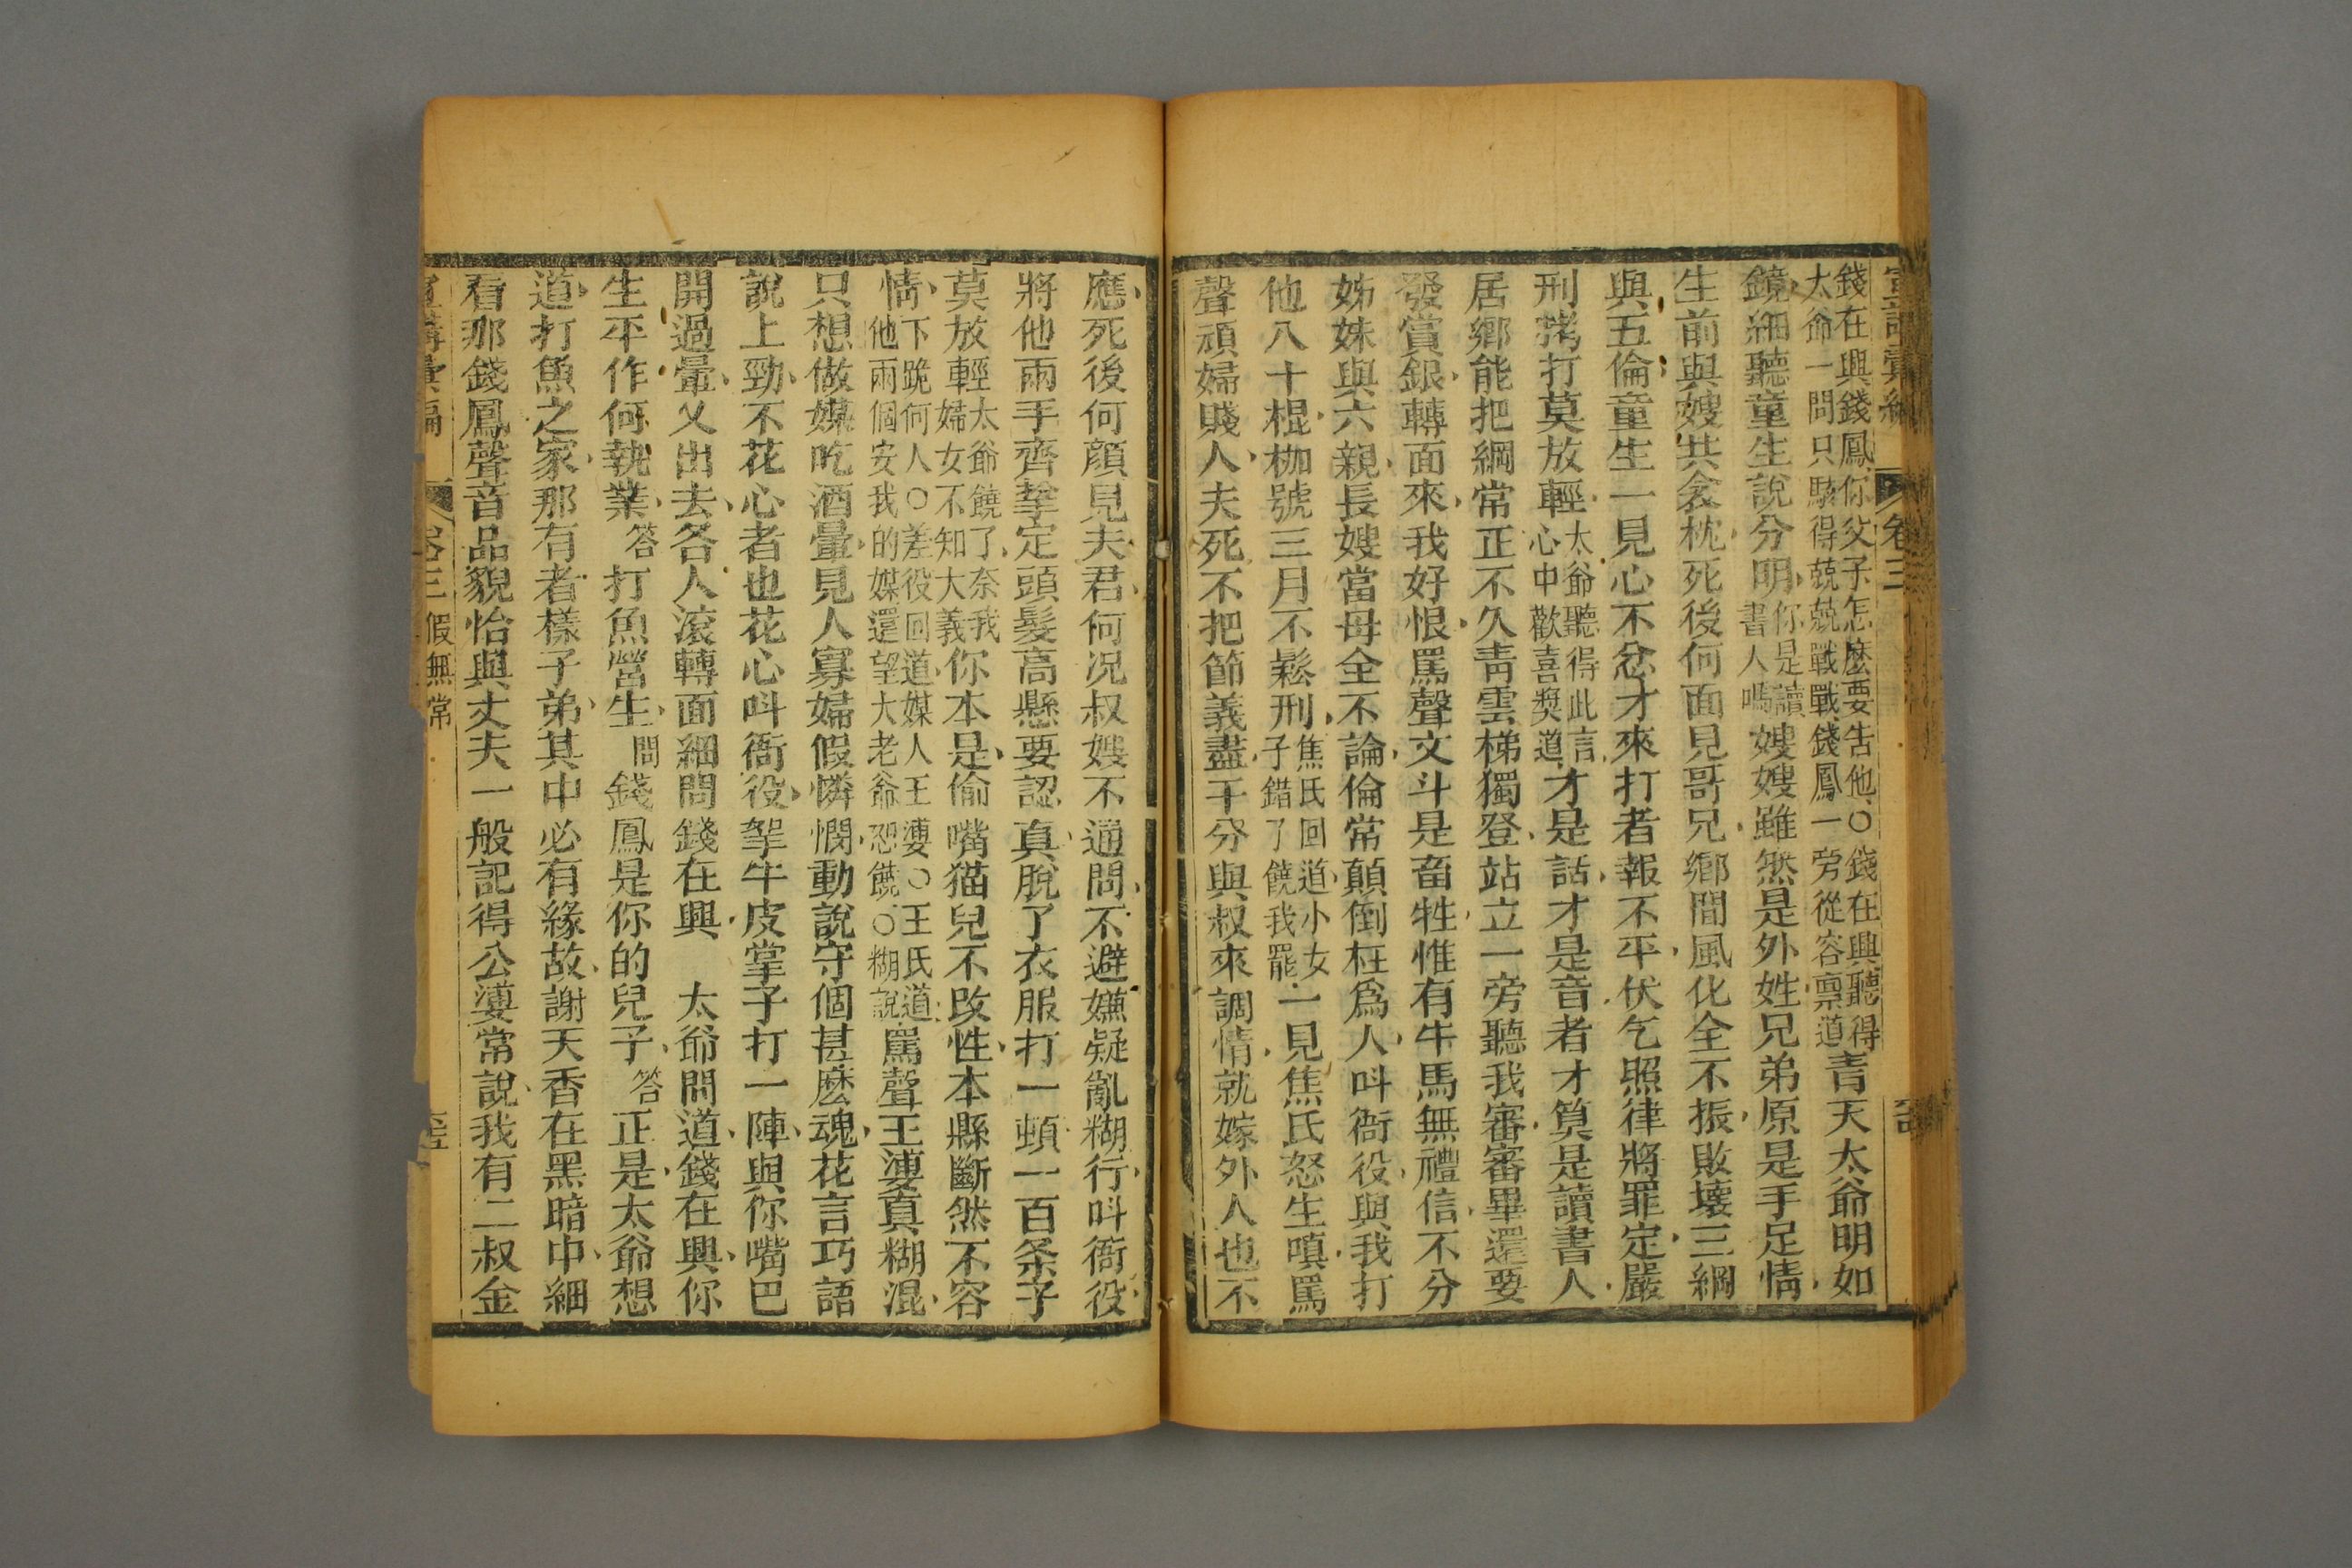 宣講彙編 卷三
錢在興錢鳳你父子怎麽要告他○錢在興聽得
太爺一問只駭得兢兢戰戰錢鳳一旁從容禀道青天太爺明如
鏡細聽童生說分明你是讀書人嗎嫂嫂雖然是外姓兄弟原是手足情
生前與嫂共衾枕死後何面見哥兄鄉間風化全不振敗壞三綱
與五倫童生一見心不忿才來打者報不平伏乞照律將罪定嚴
刑拷打莫放輕太爺聽得此言心中歡喜獎道才是話才是音者才算是讀書人
居鄉能把綱常正不久靑雲梯獨登站立一旁聽我審審畢還要
發賞銀轉面來我好恨罵聲文斗是畜牲惟有牛馬無禮信不分
姊妹與六親長嫂當母全不論倫常顛倒枉爲人呌衙役與我打
他八十棍枷號三月不鬆刑焦氏回道小女子錯了饒我罷一見焦氏怒生嗔罵
聲頑婦賤人夫死不把節義盡干分與叔來調情就嫁外人也不
應死後何顔見夫君何况叔嫂不通問不避嫌疑亂糊行呌衙役
將他兩手齊拏定頭髮高懸要認真脫了衣服打一頓一百条子
莫放輕太爺饒了奈我婦女不知大義你本是偷嘴猫兒不改性本縣斷然不容
情下跪何人○差役回道媒人王婆○王氏道他兩個安我的媒還望大老爺恕饒○糊說罵聲王婆真糊混
只想做媒吃酒暈見人寡婦假憐憫動說守個甚麽魂花言巧語
說上勁不花心者也花心呌衙役拏牛皮掌子打一陣與你嘴巴
開過暈乂出去各人滚轉面細問錢在興 太爺問道錢在興你
生平作何執業答打魚營生問錢鳳是你的兒子答正是太爺想
道打魚之家那有者樣子弟其中必有緣故謝天香在黑暗中細
看那錢鳳聲音品貌怡與丈夫一般記得公婆常說我有二叔金
宣講彙編 卷三 假無常